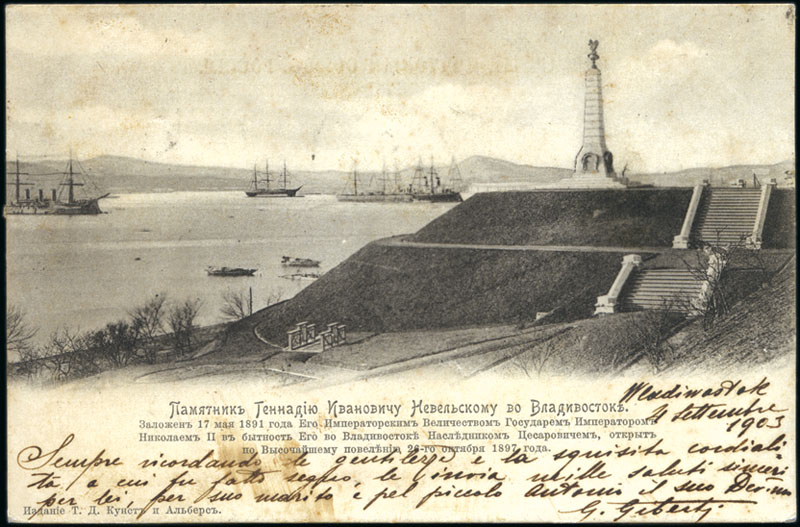 Памятникъ Геннадію Ивановичу Невельскому во Владивостокѣ.
Заложенъ 17 мая 1891 года Его Императорскимъ Величествомъ Государемъ Императоромъ
Николаемъ II въ бытность Его во Владивостокѣ Наслѣдникомъ Цесаровичемъ, открытъ
по Высочайшему повелѣнію 26-го октября 1897 года.
Wladiwostok
4 Settembre
1903
Sempre ricordando le gentilezze e la squisita cordiali
tà, a cui fu fatto segno, le invia mille saluti sinceri
per lei, per suo marito e pel piccolo Antonio il suo Dev.mo
G. Giberti
Изданіе Т. Д. Кунстъ и Альберсъ.